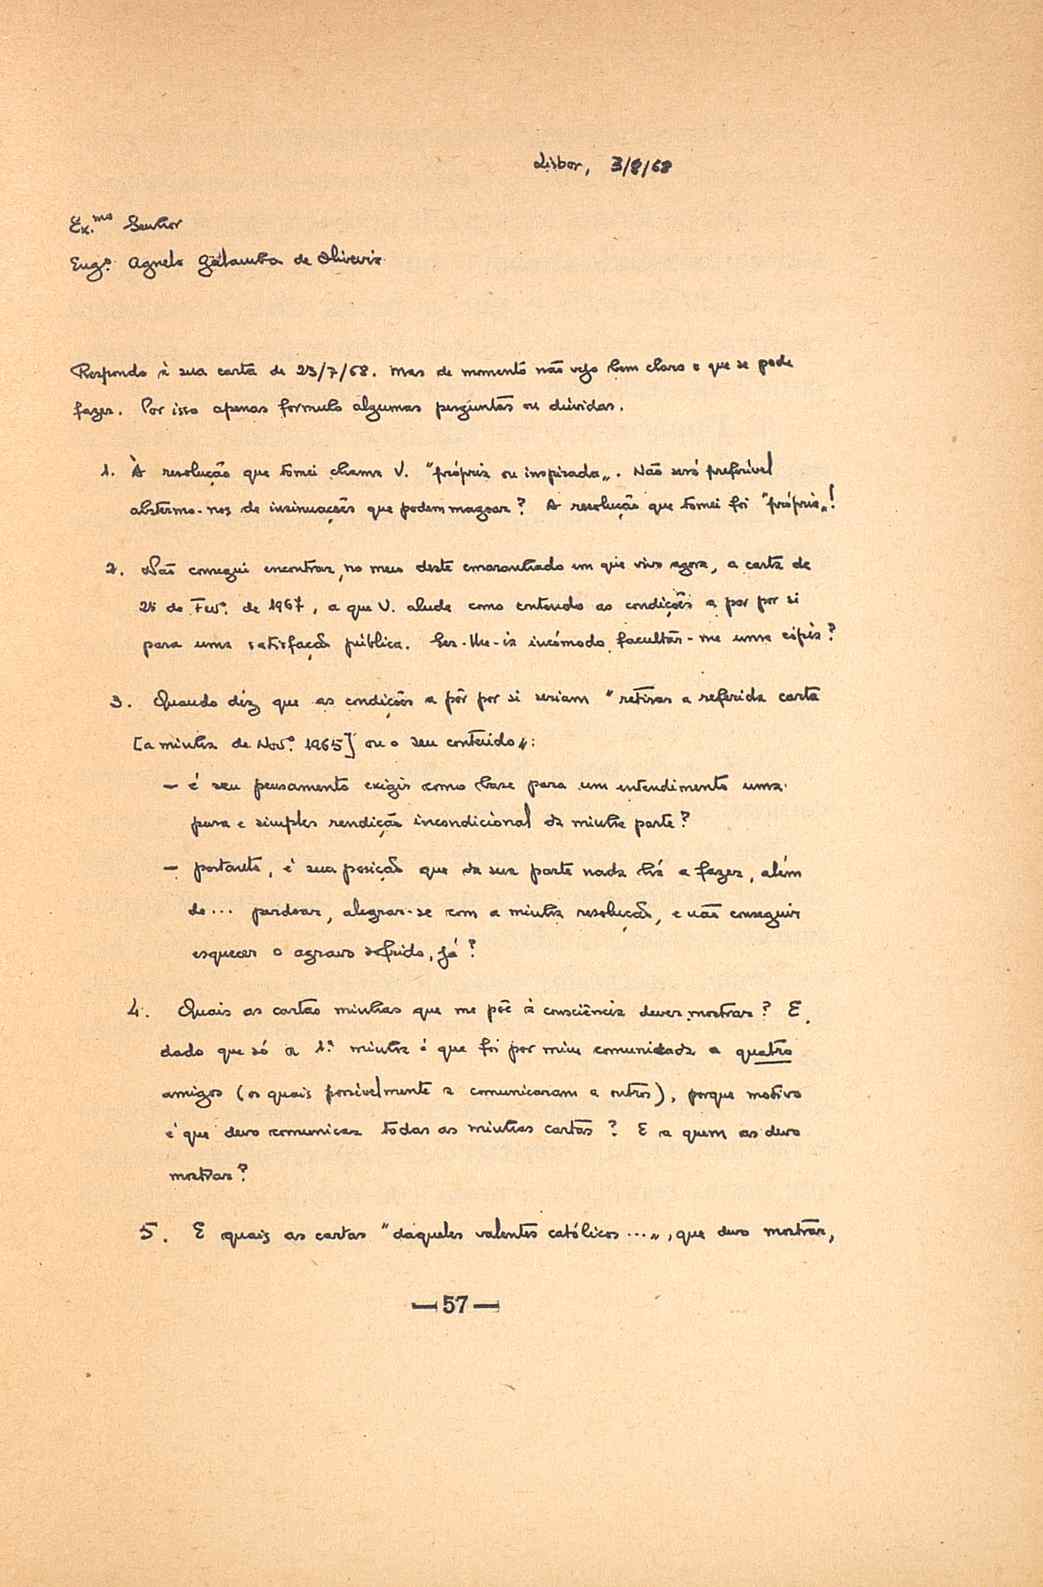 Lisboa, 3/8/68
Ex.mo Senhor
Eng.º Agnelo Galamba de Oliveira
Respondo à sua carta de 23/7/68. Mas de momento não vejo bem claro o que se pode
fazer. Por isso apenas formulo algumas perguntas ou dúvidas.
1. À resolução que tomei chama V. "própria ou inspirada". Não será preferível
abstermo-nos de insinuações que podem magoar? A resolução que tomei foi "própria"!
2. Não consegui encontrar, no meio deste emaranhado em que vivo agora, a carta de
25 de Fev.º de 1967, a que V. alude como contendo as condições a pôr por si
para uma satisfação pública. Ser-lhe-ia incómodo facultar-me uma cópia?
3. Quando diz que as condições a pôr por si seriam "retirar a referida carta
[a minha de Nov.º 1965] ou o seu conteúdo":
— é seu pensamento exigir como base para um entendimento uma
pura e simples rendição incondicional da minha parte?
— portanto, é sua posição que da sua parte nada há a fazer, além
de... perdoar, alegrar-se com a minha resolução, e não conseguir
esquecer o agravo sofrido, já?
4. Quais as cartas minhas que me põe à consciência dever mostrar? E
dado que só a 1.ª minha é que foi por mim comunicada a quatro
amigos (os quais possivelmente a comunicaram a outros), porque motivo
é que devo comunicar todas as minhas cartas? E a quem as devo
mostrar?
5. E quais as cartas "daqueles valentes católicos...", que devo mostrar,
— 57 —